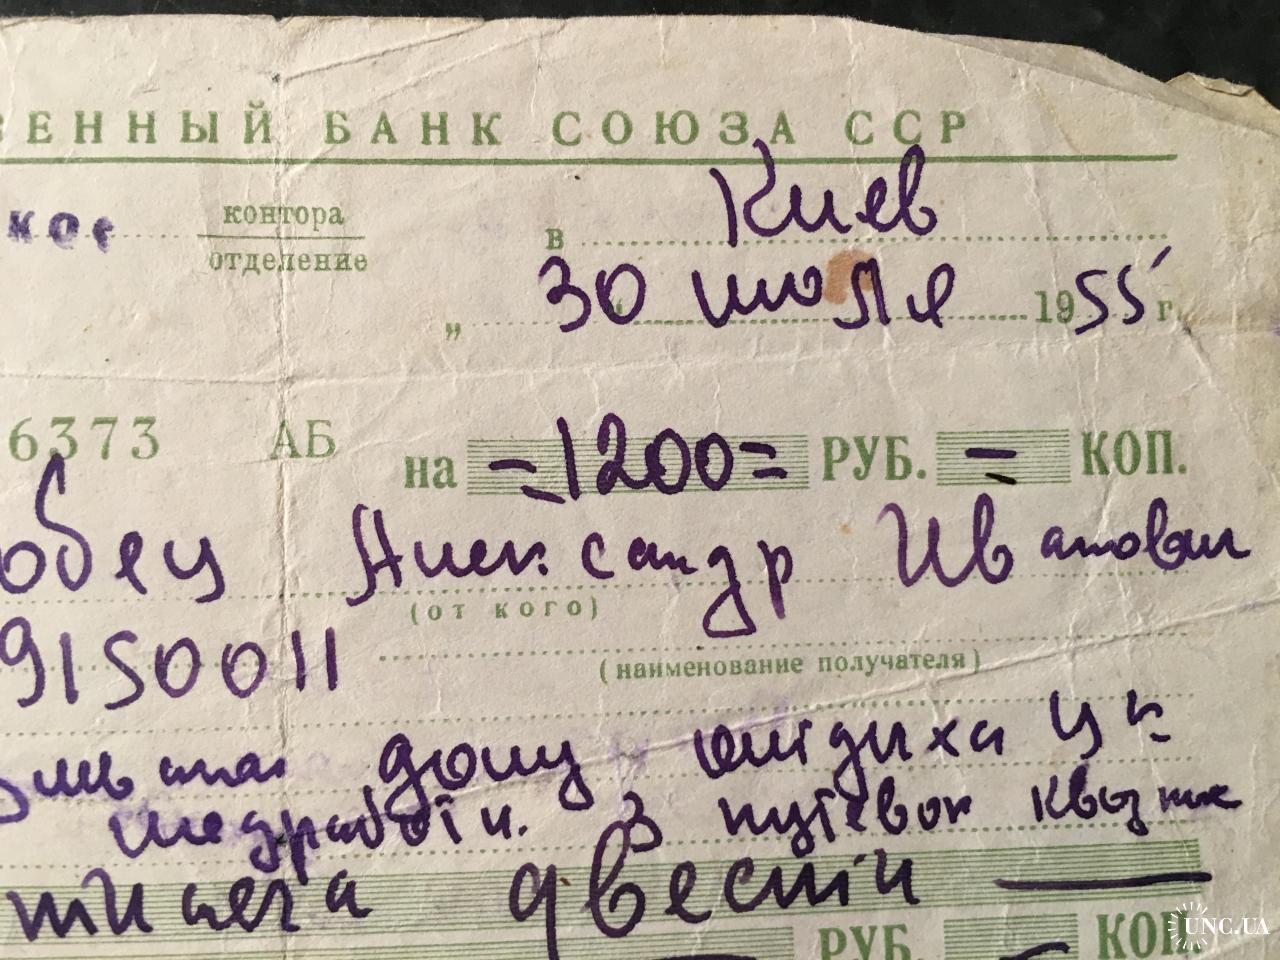 ВЕННЫЙ БАНК СОЮЗА ССР
кое контора отделение в Киев
„ 30 июля 1955 г.
6373 АБ на =1200= РУБ. = КОП.
обец Александр Иванович
(от кого)
9150011
(наименование получателя)
дому отдыха ЦК
медработн. 3 путевок
тысяча двести —
РУБ. КОП.
UNC.UA